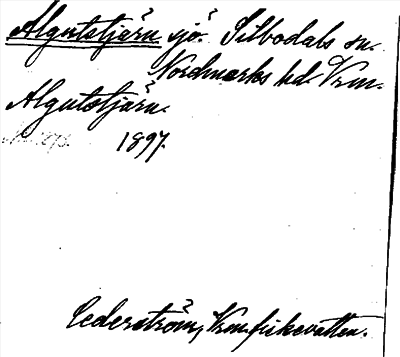 Algutstjärn sjö. Silbodals sn.
Nordmarks hd. Vrm.
Algutstjärn.
1897.
Cederström, Vrm. fiskevatten.